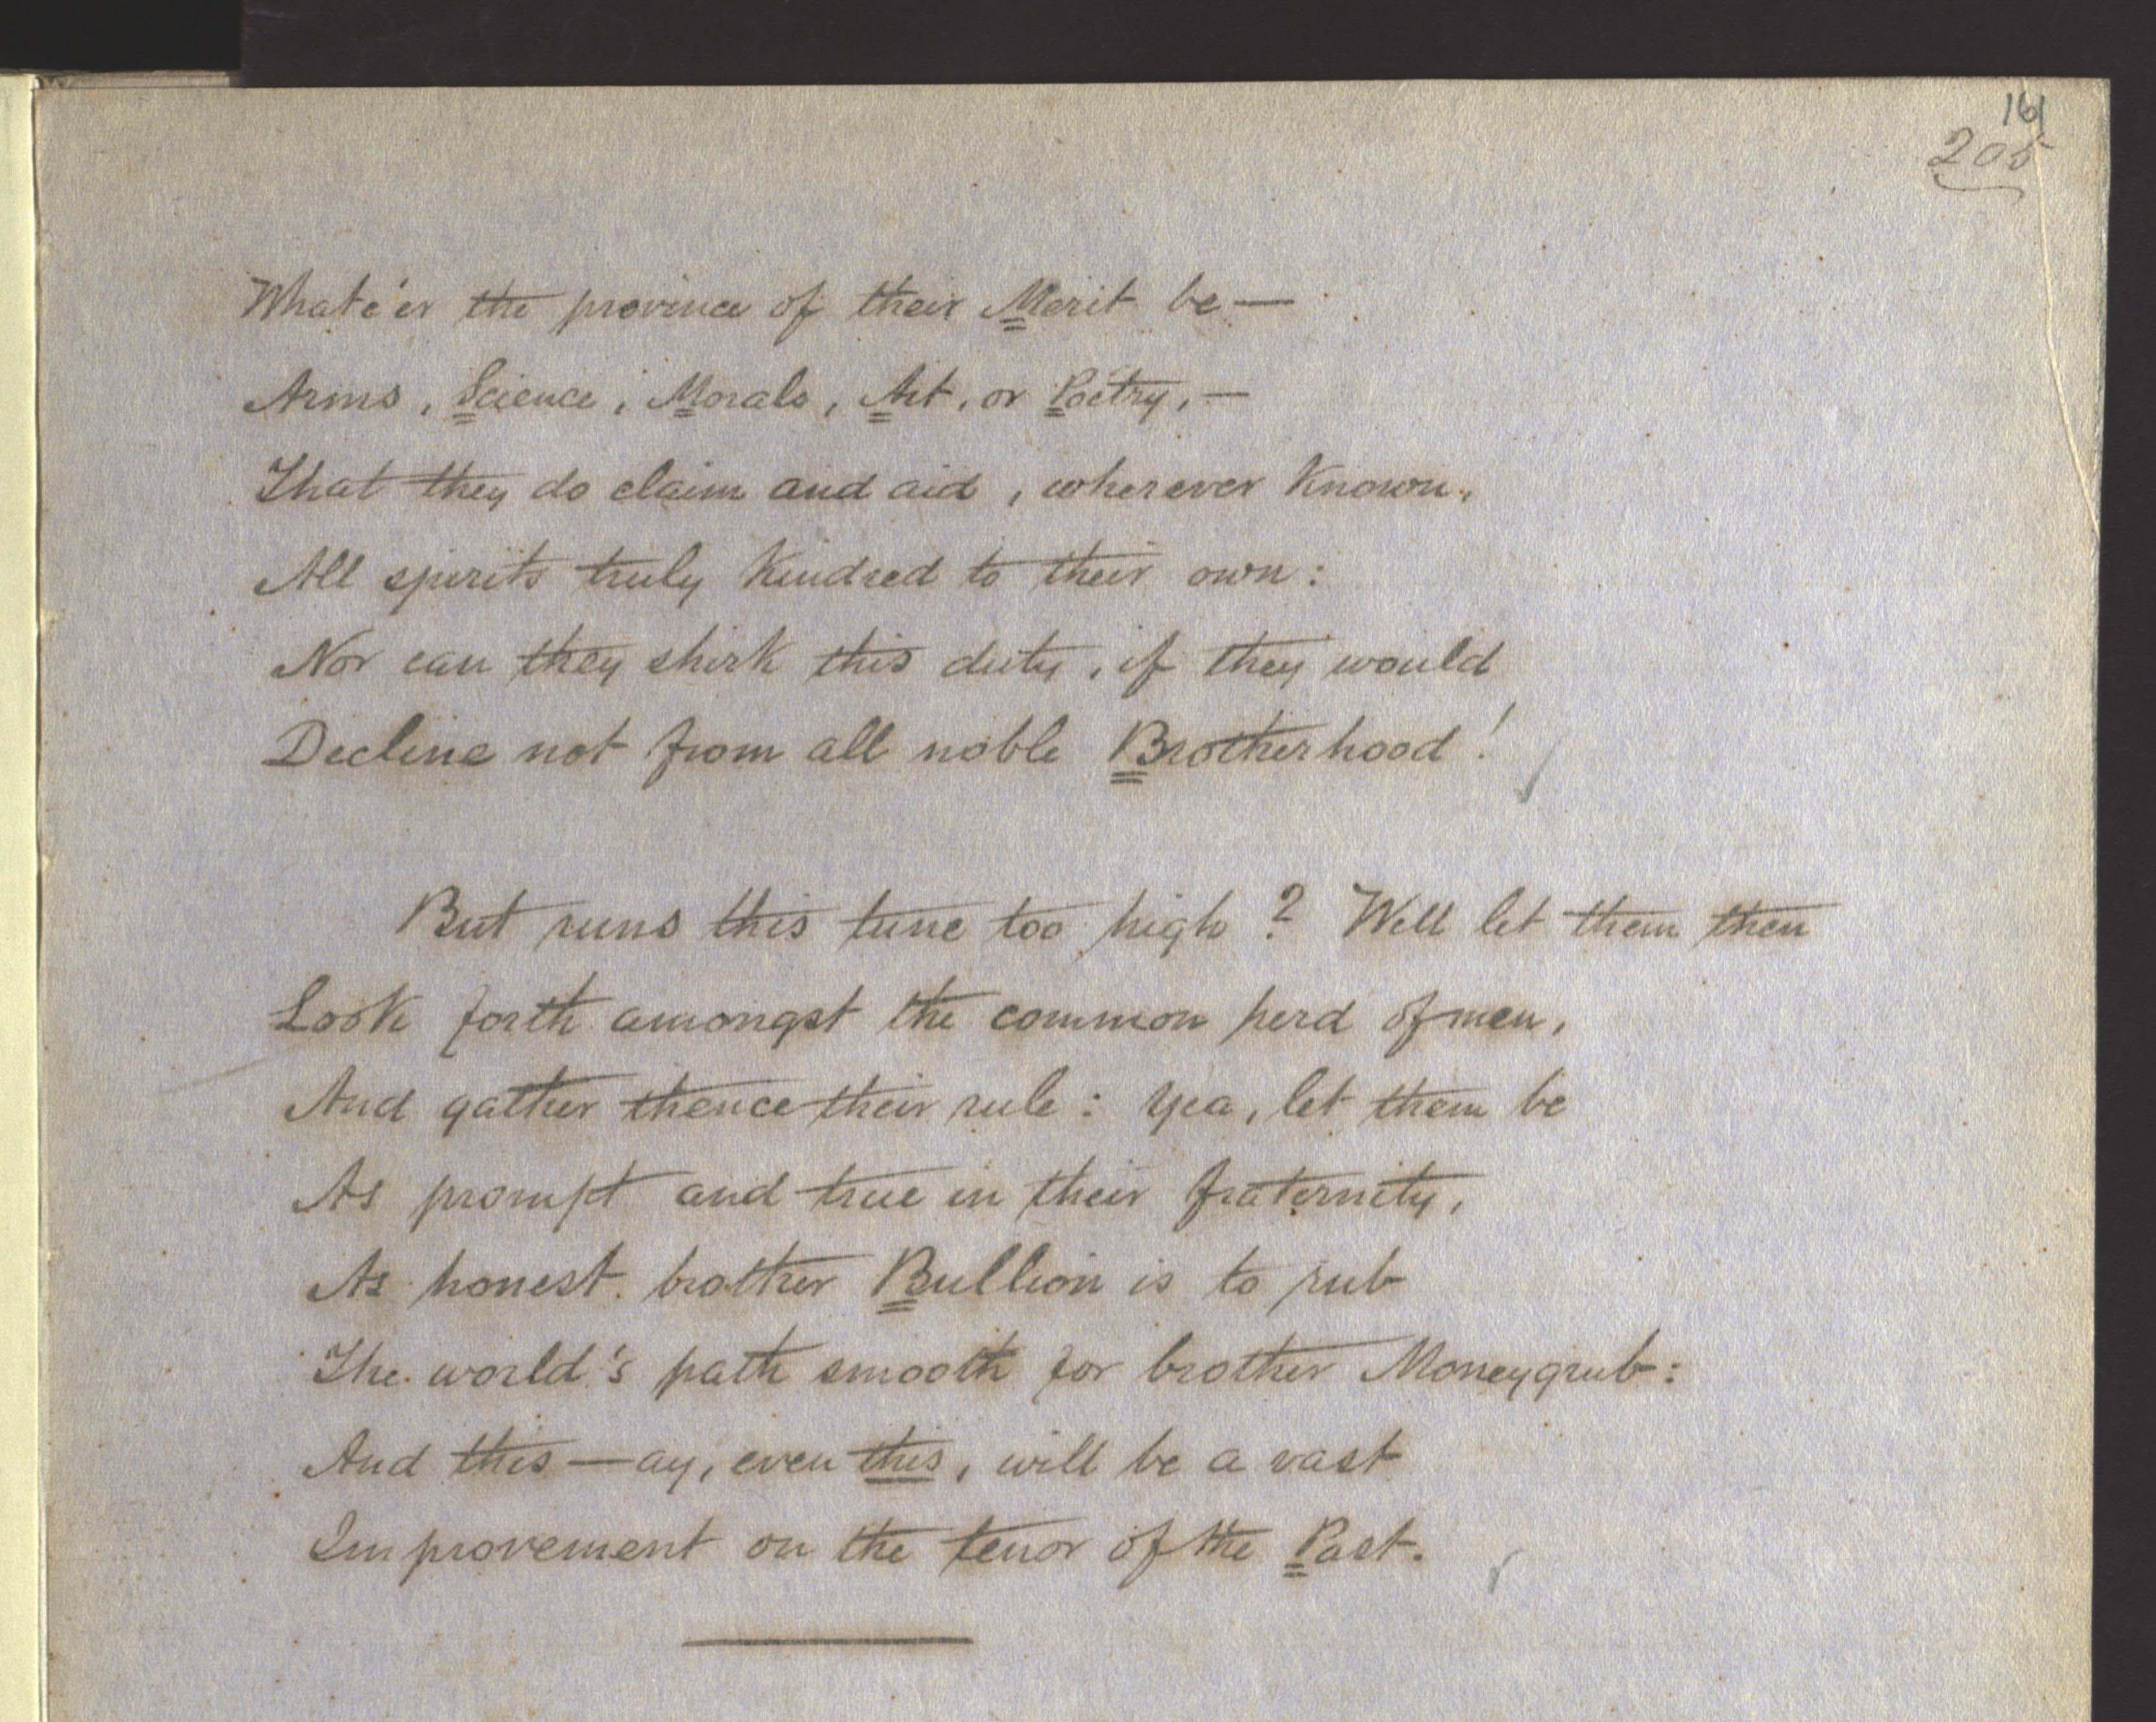 161
205
Whate'er the province of their Merit be—
Arms, Science, Morals, Art, or Poetry,—
That they do claim and aid, wherever known,
All spirits truly kindred to their own:
Nor can they shirk this duty, if they would
Decline not from all noble Brotherhood!
But runs this tune too high? Well let them then
Look forth amongst the common herd of men,
And gather thence their rule: yea, let them be
As prompt and true in their fraternity,
As honest brother Bullion is to rub
The world's path smooth for brother Moneygrub:
And this—ay, even this, will be a vast
Improvement on the tenor of the Past.